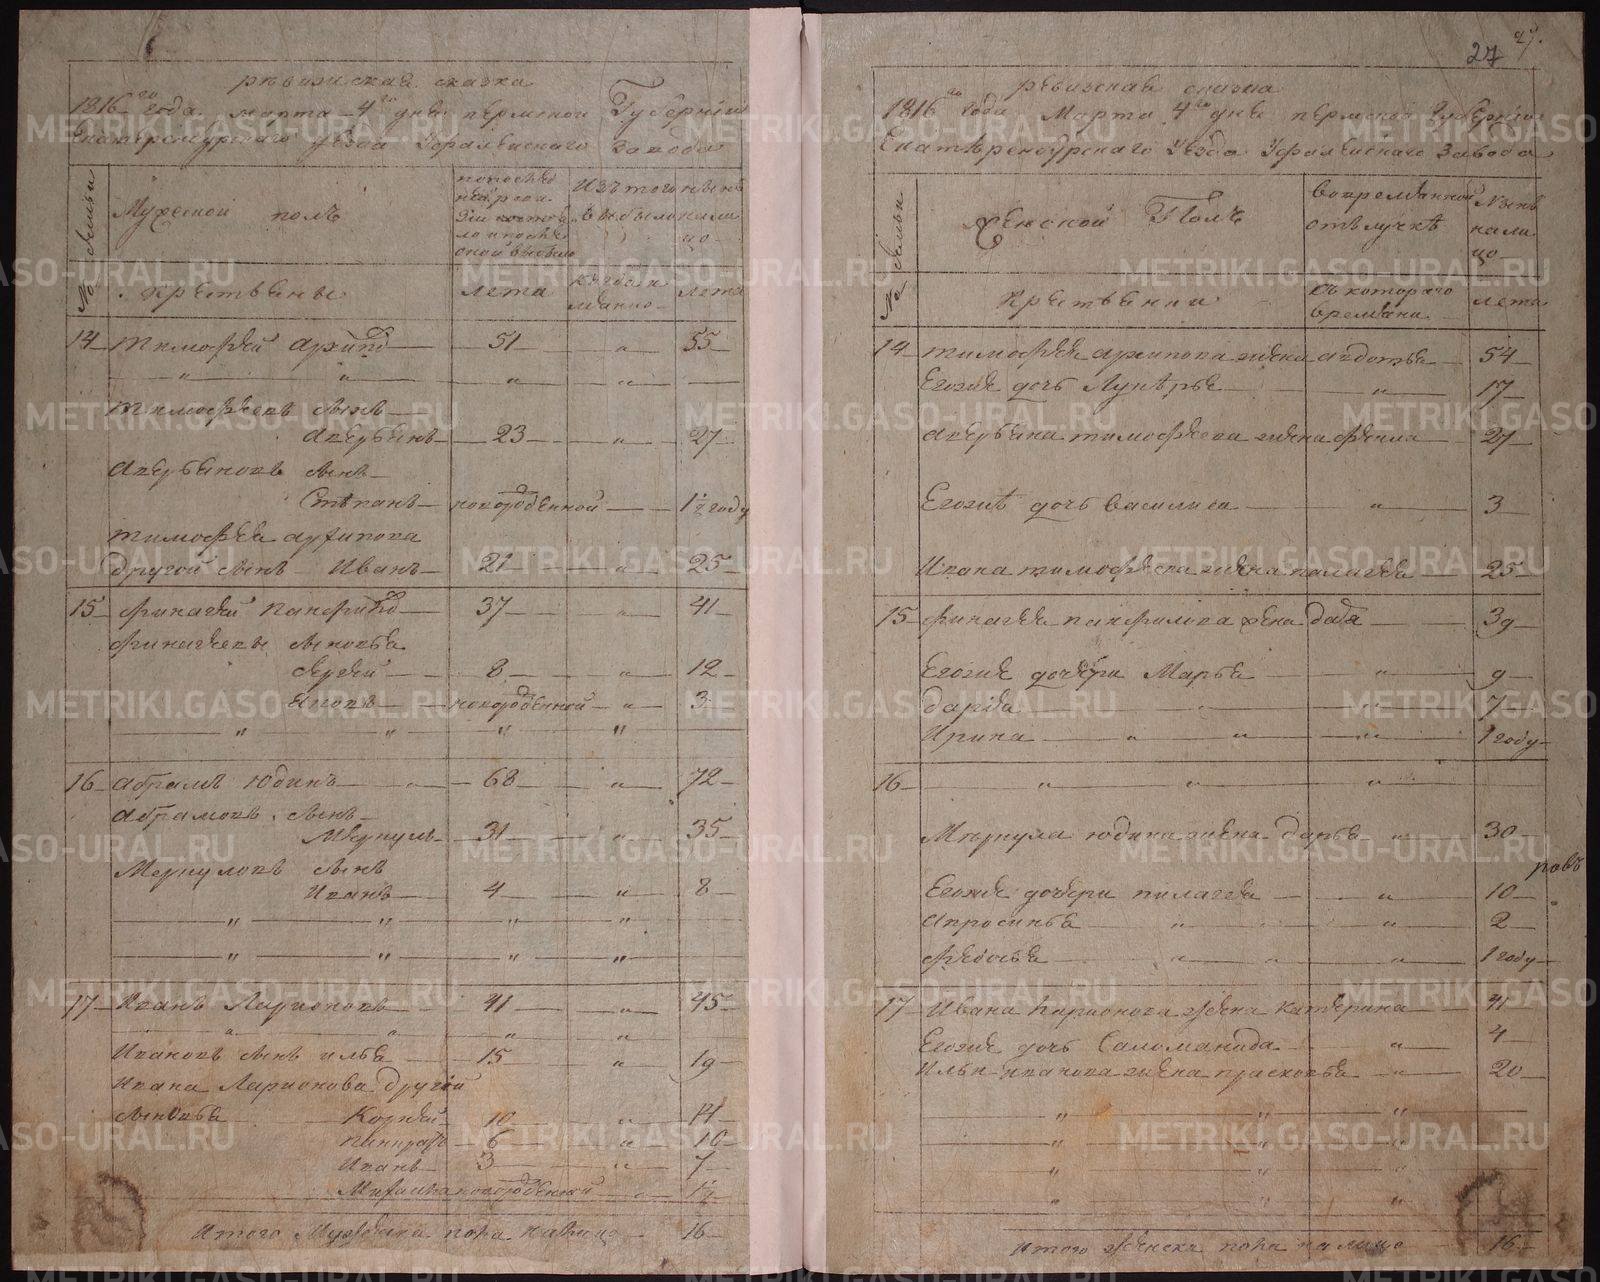 ревижская сказка
1816го года марта 4го дня пермской Губернiи
Екатеренбургаго уезда Уфалейскаго Завода
№ семьи
Мужеской полъ
Изъ того
выбыло
ныне
нали
цо
крестьяны
лета
когда и
лета
14 тимофей архипо 51 " 55
" " " "
тимофеевъ сынъ
Аверьянъ 23 " 27
Аверьяновъ сынъ
Степанъ новорожденной 1½ году
тимофея архипова
другой сынъ Иванъ 21 " 25
15 финагей панфило 37 " 41
финагеевы сыновья
сергей 8 " 12
новорожденной " 3
" " " "
16 абрамъ юдинъ " 68 " 72
абрамовъ сынъ
Меркулъ 31 " 35
Меркуловъ сынъ
Иванъ 4 " 8
" " " "
" " " "
17 Иванъ Ларионовъ 41 " 45
" " " "
Ивановъ сынъ илья 15 " 19
Ивана Ларионова другiй
сыновья Корней 10 " 14
6 " 10
Иванъ 3 " 7
Михайла новорожденной " 1½
Итого Мужеска пола налицо 16
27
27.
ревизская сказка
1816го года Марта 4го дня пермской Губернiи
Екатеренбурскаго Уезда Уфалейскаго Завода
№ семьи
Женской Полъ
Вовременной
отълучке
Ныне
нали
цо
крестьянки
съ котораго
времяни
лета
14 тимофея архипова жена авдотья 54
Егоже дочь Лукерья " 17
аверьяна тимофеева жена фекла 27
Егоже дочь василиса " 3
Ивана тимофеева жена палагея 25
15 финагея панфилова жена 39
Егоже дочери Марья " 9
дарья " 7
Ирина " " " 1 году
16 " " "
Меркула юдина жена дарья " 30
ровъ
Егоже дочери пилагея " 10
Апросинья " " 2
федосья " " " 1 году
17 Ивана Ларионова жена катерина 41
Егоже дочь Саломанида " 4
Ильи иванова жена прасковья " 20
" " "
" " "
" " "
" " "
итого женска пола налицо 16
METRIKI.GASO-URAL.RU